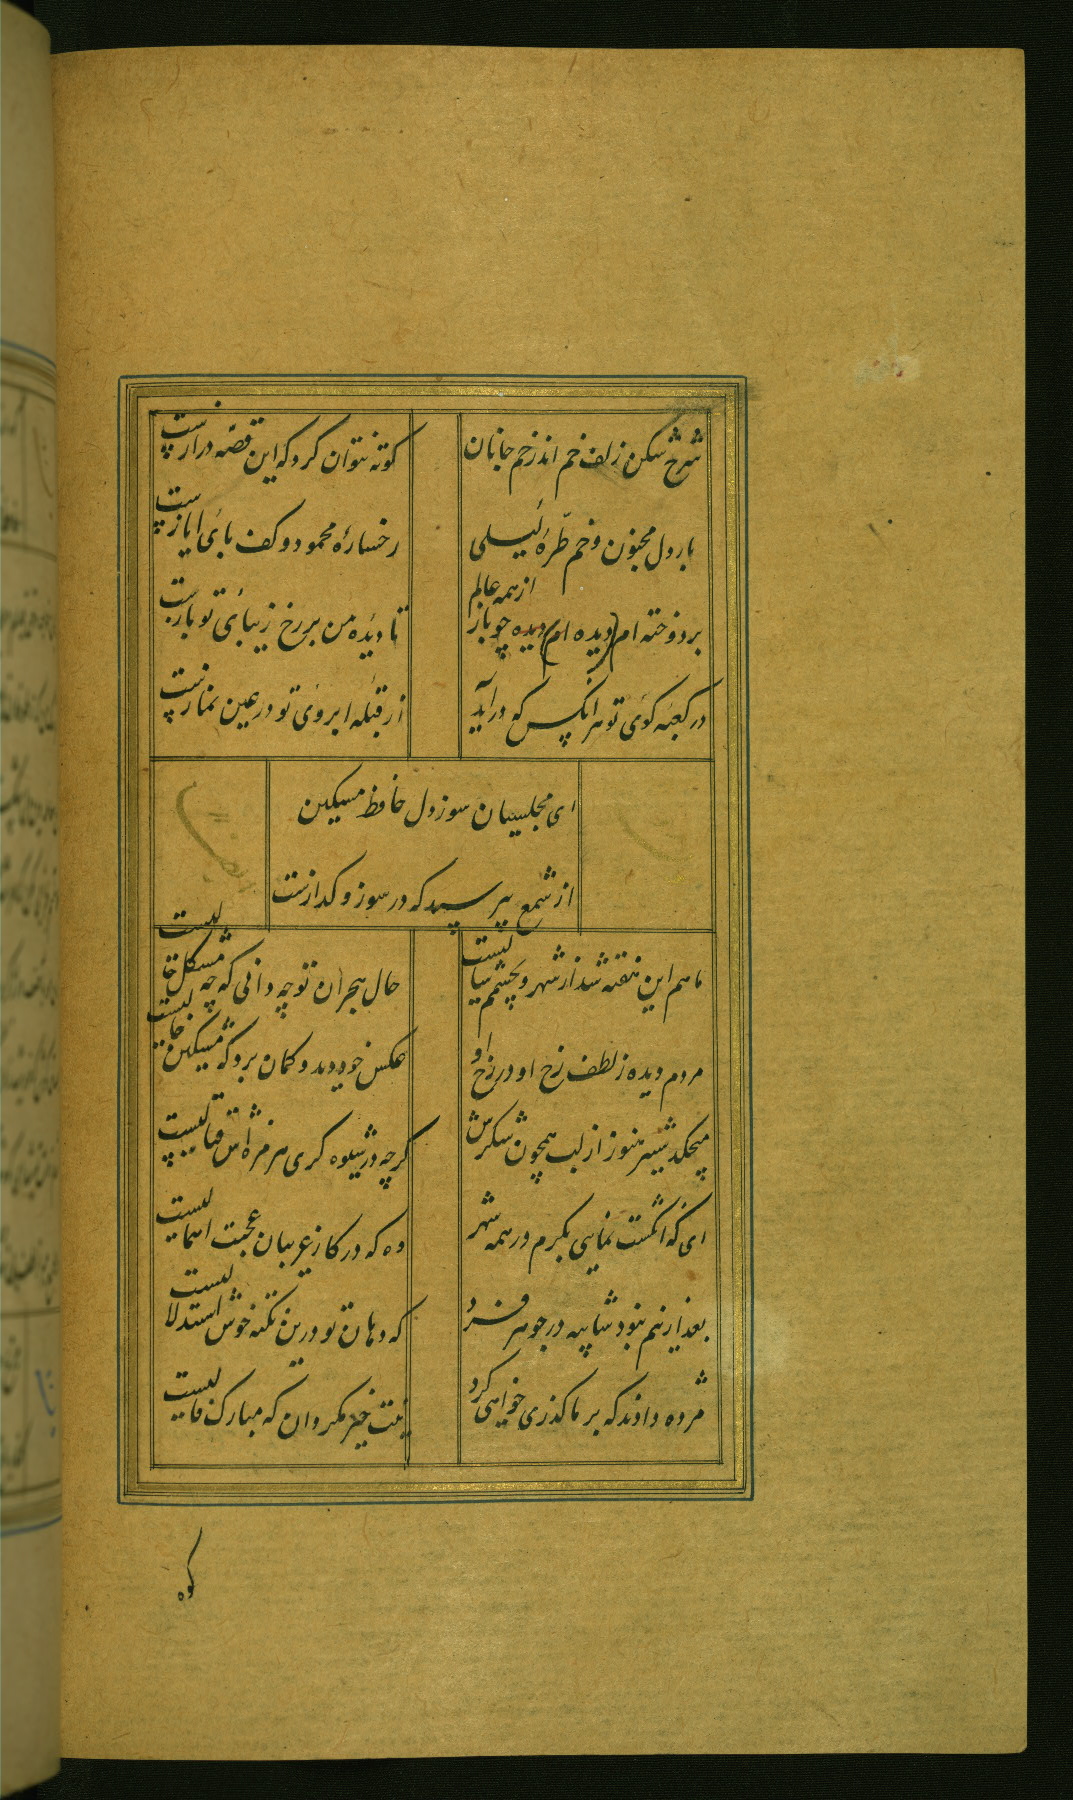 شرح شکن زلف خم اندر خم جانان
کوته نتوان کرد که این قصّه درازست
بار دل مجنون و خم طّرهٔ لیلی
رخسارهٔ محمود و کف بائی ایازست
بردوخته ام دیده ام دیده چو باز از همه عالم
تا دیدهٔ من بر رخ زیبائی تو بازست
در کعبهٔ کوئی تو هر آنکس که درآید
از قبلهٔ ابروئی تو در عین نمازست
ای مجلسیان سوز دل حافظ مسکین
از شمع بپرسید که در سوز و کدازست
ماهم این هفته شد از شهر و بچشمم سالیست
حال هجران تو چه دانی که چه مشکل حالیست
مردم دیده ز لطف رخ او در رخ او
عکس خود دید و کمان برد که مشکین خالیست
میچکد شیر هنوز از لب همچون شکرش
کرچه در شیوه کری هر مژه اش قتالیست
ای که انکشت نمایی بکرم در همه شهر
وه که در کار غریبان عجبت اهمالیست
بعد ازینم نبود شایبه در جوهر فرد
که دهان تو درین نکته خوش استدلالیست
مژده دادند که بر ما کذری خواهی کرد
نیت خیر مکردان که مبارک فالیست
کوه